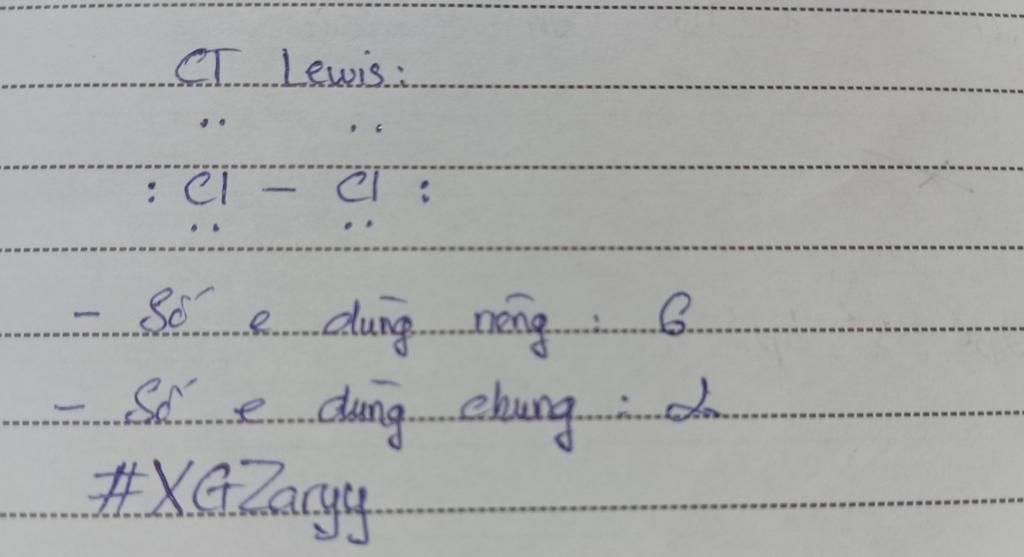 CT Lewis:
.. ..
: Cl – Cl :
.. ..
- Số e dùng riêng : 6
- Số e dùng chung : 2
#XGZaryy